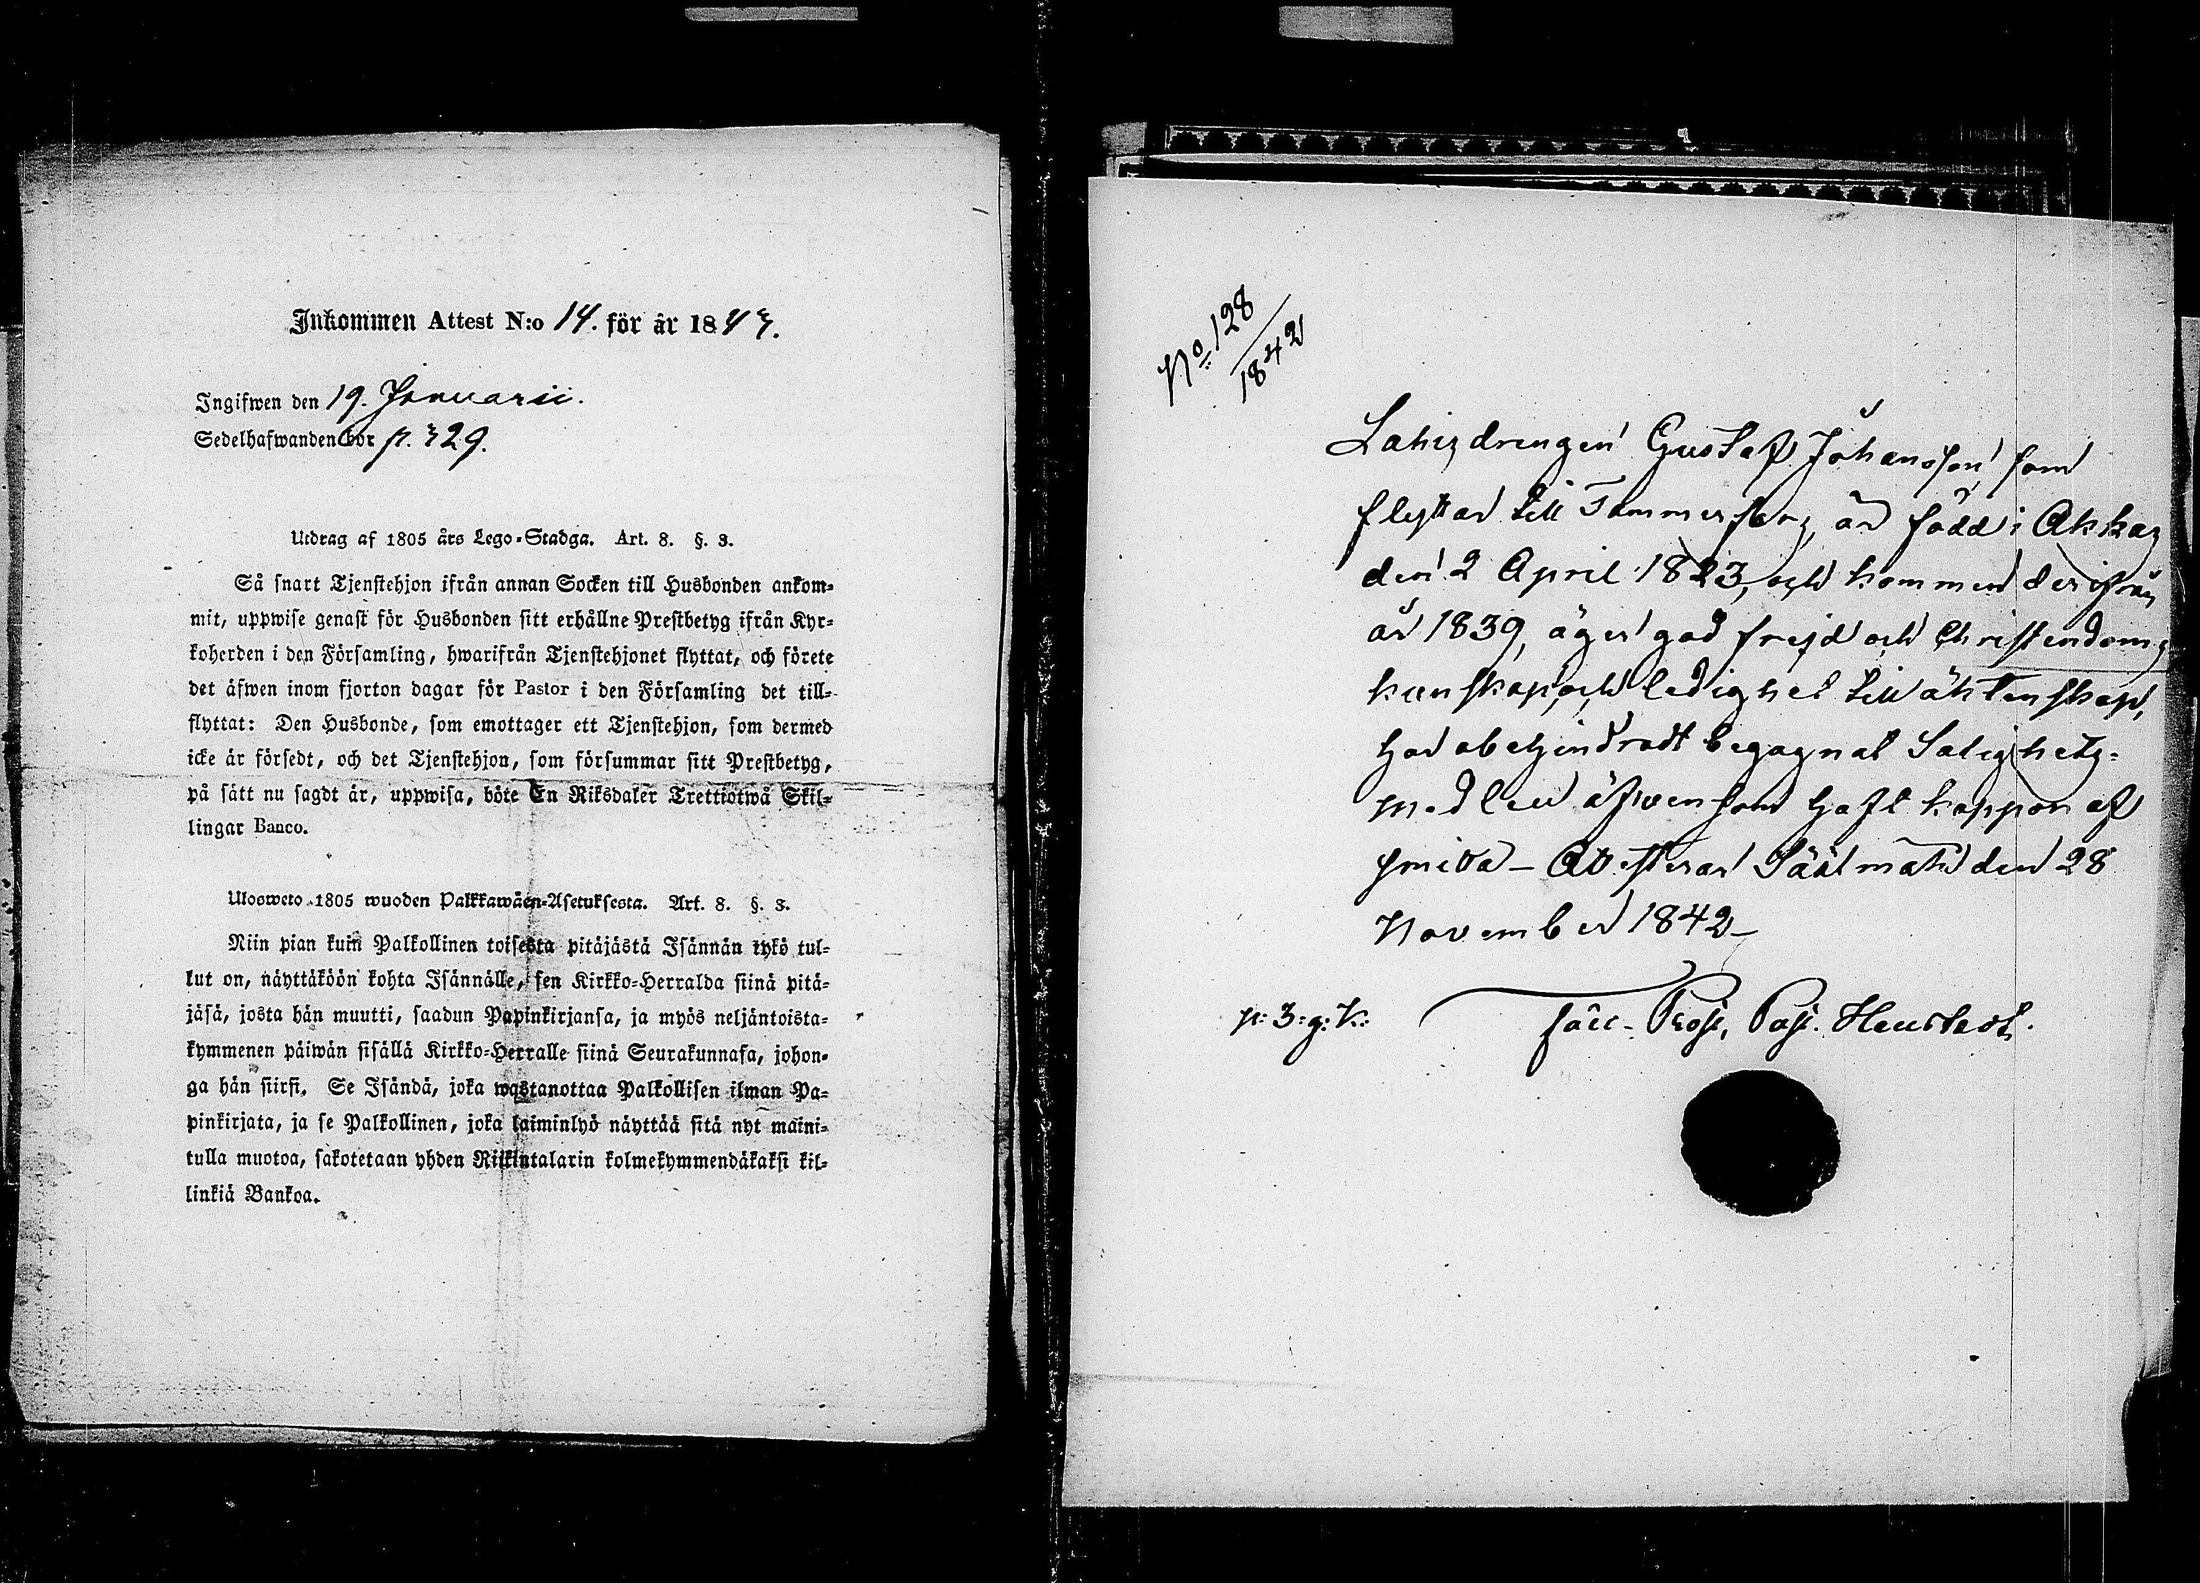 Inkommen Attest N:o 14. för år 1843.
Ingifwen den 19. Januarii.
Sedelhafwanden bor p. 329.
Utdrag af 1805 års Lego-Stadga. Art. 8. §. 3.
Så snart Tjenstehjon ifrån annan Socken till Husbonden ankom-
mit, uppwise genast för Husbonden sitt erhållne Prestbetyg ifrån Kyr-
koherden i den Församling, hwarifrån Tjenstehjonet flyttat, och förete
det äfwen inom fjorton dagar för Pastor i den Församling det till-
flyttat: Den Husbonde, som emottager ett Tjenstehjon, som dermed
icke är försedt, och det Tjenstehjon, som försummar sitt Prestbetyg,
på sätt nu sagdt är, uppwisa, böte En Riksdaler Trettiotwå Skil-
lingar Banco.
Ulosweto 1805 wuoden Palkkawäen-Asetuksesta. Art. 8. §. 3.
Niin pian kuin Palkollinen toisesta pitäjästä Isännän tykö tul-
lut on, näyttäköön kohta Isännälle, sen Kirkko-Herralda siinä pitä-
jäsä, josta hän muutti, saadun Papinkirjansa, ja myös neljäntoista-
kymmenen päiwän sisällä Kirkko-Herralle siinä Seurakunnasa, johon-
ga hän siirsi. Se Isändä, joka wastanottaa Palkollisen ilman Pa-
pinkirjata, ja se Palkollinen, joka laiminlyö näyttää sitä nyt maini-
tulla muotoa, sakotetaan yhden Riikintalarin kolmekymmendäkaksi kil-
linkiä Bankoa.
No 128
1842
drengen Gustaf Johansson som
flyttar till Tammerfors, är född i Akkas
den 2 April 1823, och kommen derifrån
år 1839, äger god frejd och Christendoms
kunskap, och ledighet till äktenskap,
har obehindradt begagnat Salighets-
medlen äfwensom haft koppor af
smitta – Attesterar Sääxmäki den 28
November 1842 –
p: 3: g: K:
Prost, Past.